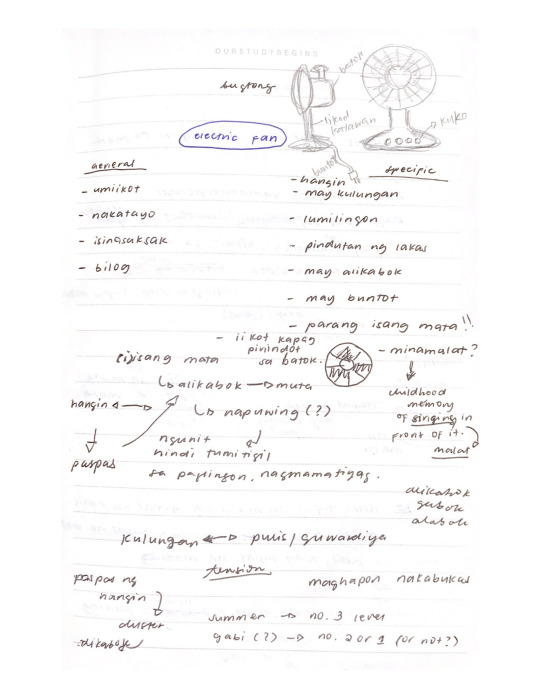 OURSTUDYBEGINS
bugtong
batok
likod
katawan
kuko
buntot
electric fan
general
- umiikot
- nakatayo
- isinasaksak
- bilog
specific
- hangin
- may kulungan
- lumilingon
- pindutan ng lakas
- may alikabok
- may buntot
- parang isang mata!!
- iikot kapag
pinindot
sa batok.
- minamalat?
iisang mata
↳ alikabok → muta
hangin ↔
↳ napuwing (?)
paspas
ngunit
hindi tumitigil
sa paglingon, nagmamatigas.
childhood
memory
of singing in
front of it.
malat
alikabok
gabok
alabok
kulungan ↔ pulis/guwardiya
tension
paspas ng
hangin
duster
alikabok
maghapon nakabukas
summer → no. 3 level
gabi (?) → no. 2 or 1 (or not?)